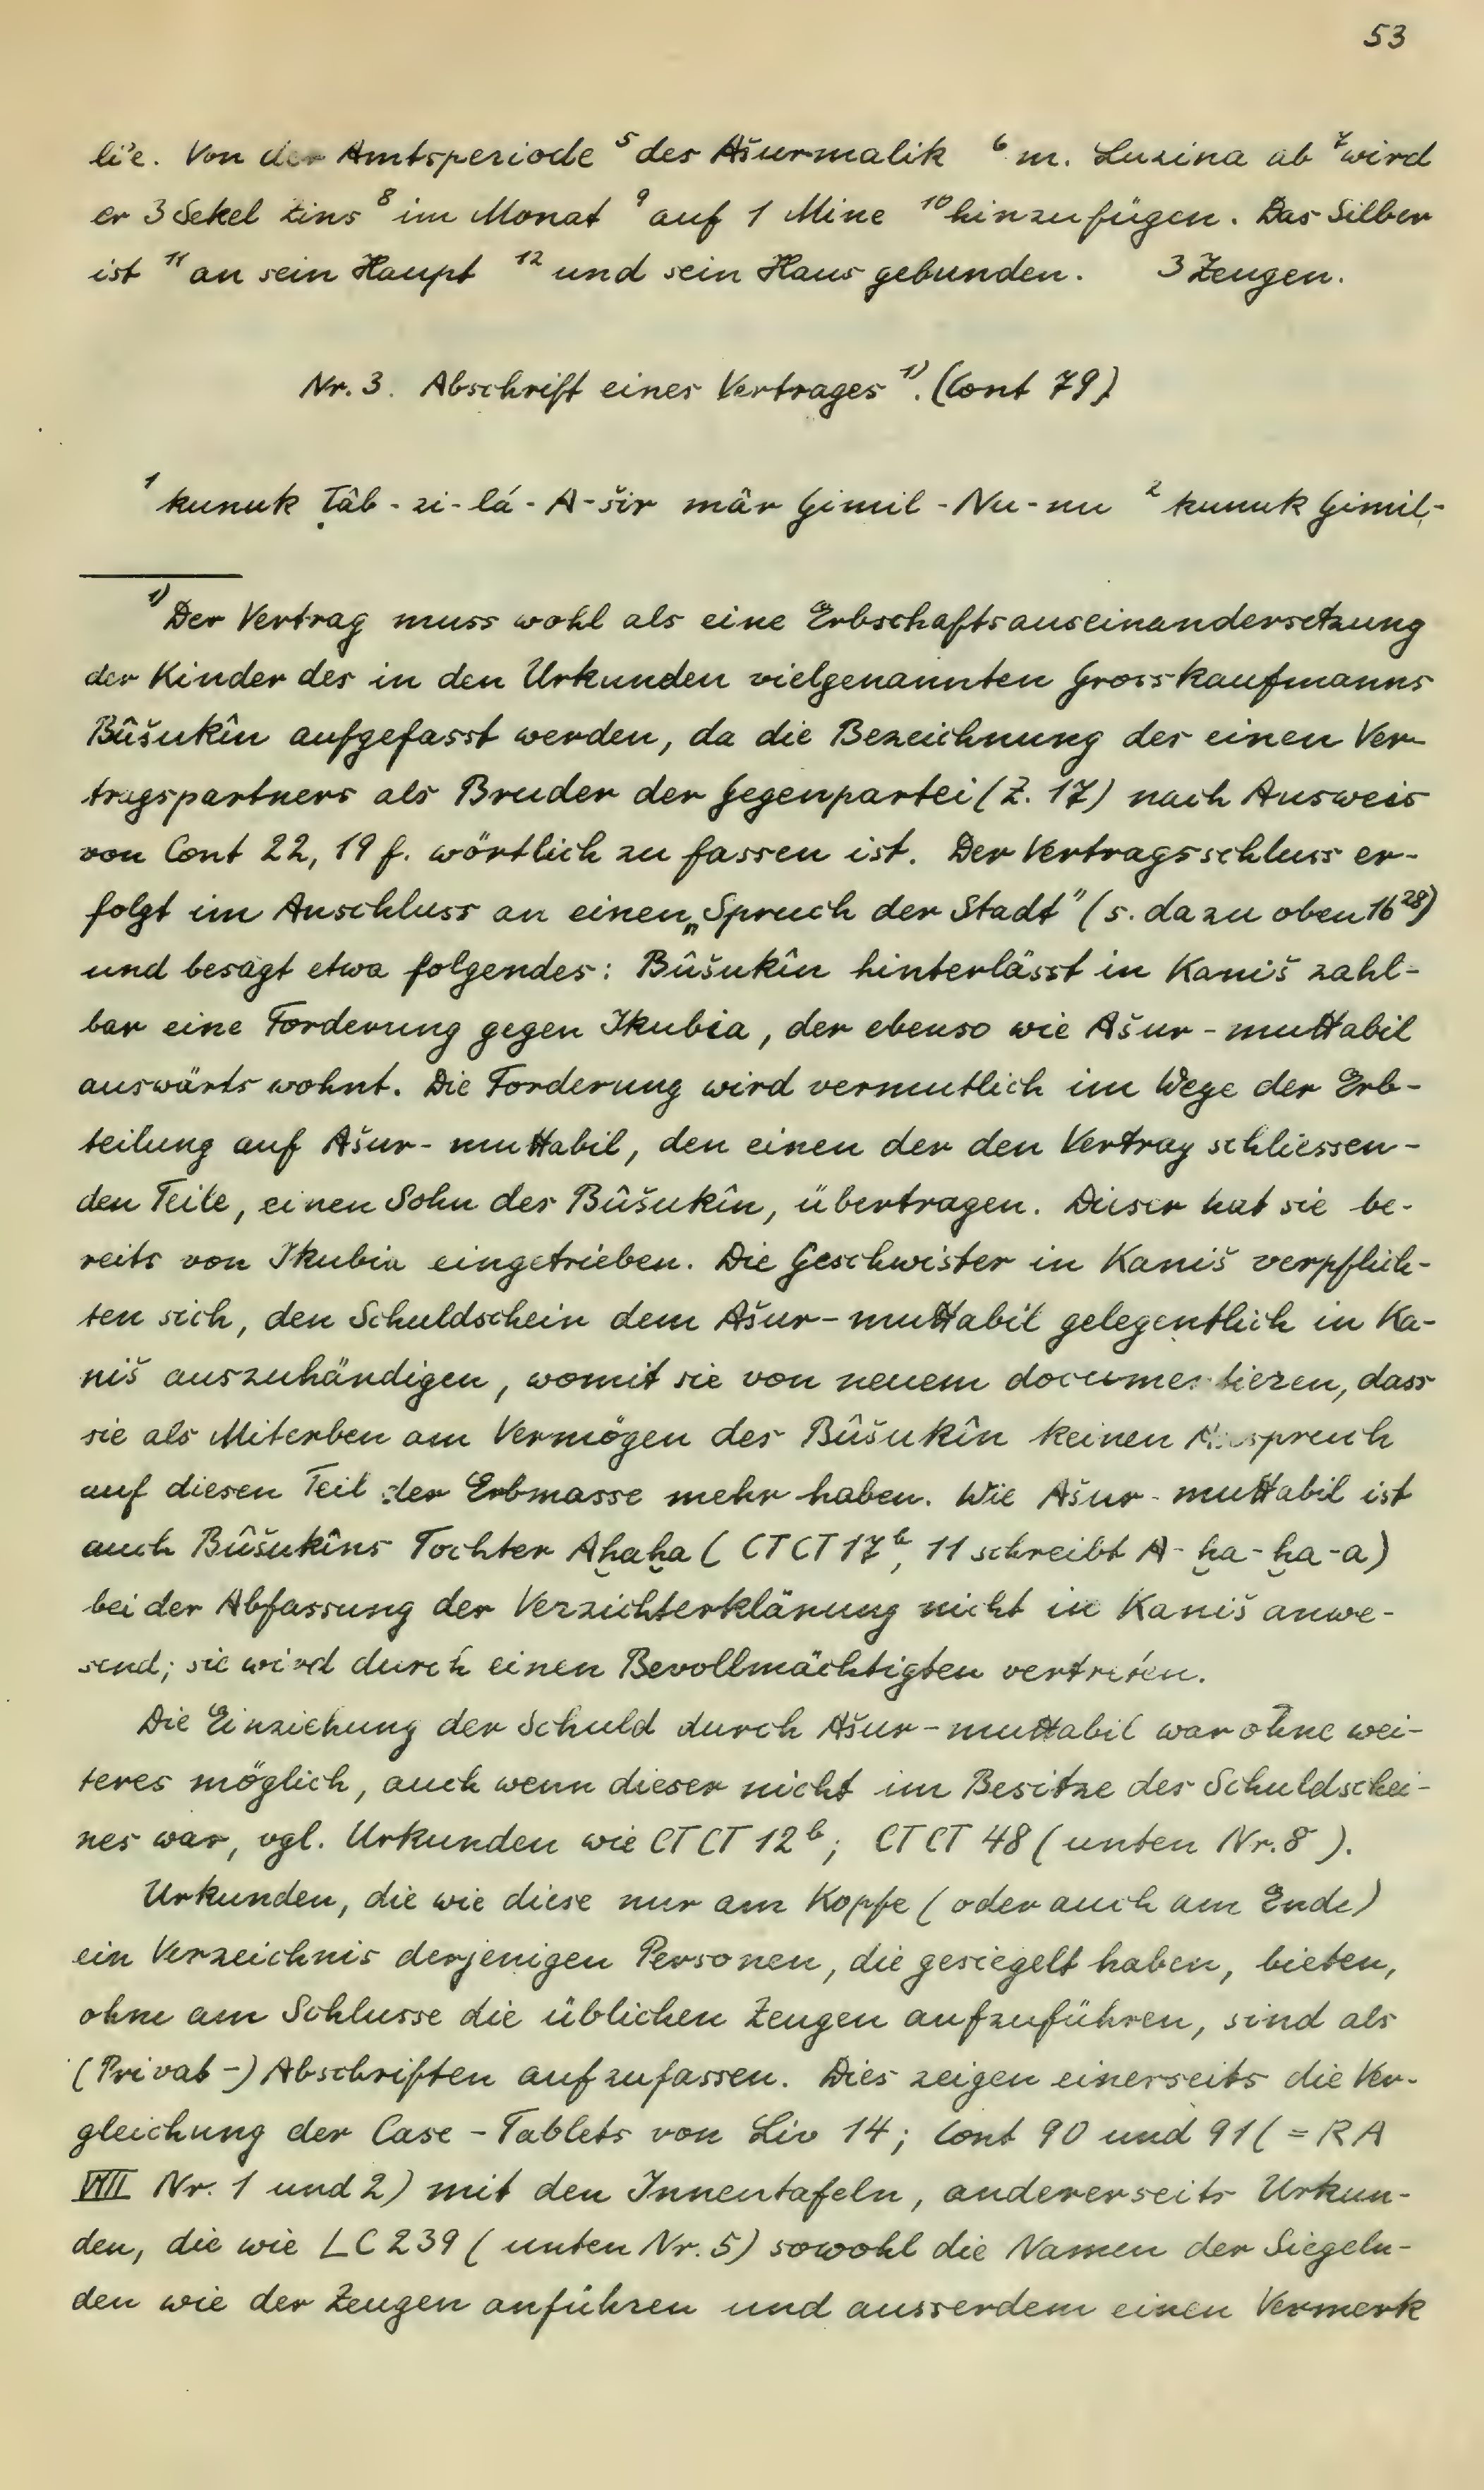 53
li'e. Von der Amtsperiode ⁵ des Ašurmalik ⁶ m. Luzina ab ⁷ wird
er 3 Sekel Zins ⁸ im Monat ⁹ auf 1 Mine ¹⁰ hinzufügen. Das Silber
ist ¹¹ an sein Haupt ¹² und sein Haus gebunden. 3 Zeugen.
Nr. 3. Abschrift eines Vertrages ¹⁾. (Cont 79)
¹ kunuk Ṭâb-zi-lá-A-šir mâr Gimil-Nu-nu ² kunuk Gimil-
¹⁾ Der Vertrag muss wohl als eine Erbschaftsauseinandersetzung
der Kinder des in den Urkunden vielgenannten Grosskaufmanns
Bûšukîn aufgefasst werden, da die Bezeichnung des einen Ver-
tragspartners als Bruder der Gegenpartei (Z. 17) nach Ausweis
von Cont 22, 19 f. wörtlich zu fassen ist. Der Vertragsschluss er-
folgt im Anschluss an einen „Spruch der Stadt" (s. dazu oben 16²⁸)
und besagt etwa folgendes: Bûšukîn hinterlässt in Kaniš zahl-
bar eine Forderung gegen Ikubia, der ebenso wie Ašur-muttabil
auswärts wohnt. Die Forderung wird vermutlich im Wege der Erb-
teilung auf Ašur-muttabil, den einen der den Vertrag schliessen-
den Teile, einen Sohn des Bûšukîn, übertragen. Dieser hat sie be-
reits von Ikubia eingetrieben. Die Geschwister in Kaniš verpflich-
ten sich, den Schuldschein dem Ašur-muttabil gelegentlich in Ka-
niš auszuhändigen, womit sie von neuem documentieren, dass
sie als Miterben am Vermögen des Bûšukîn keinen Anspruch
auf diesen Teil der Erbmasse mehr haben. Wie Ašur-muttabil ist
auch Bûšukîns Tochter Aḫaḫa (CTCT 17ᵇ, 11 schreibt A-ḫa-ḫa-a)
bei der Abfassung der Verzichterklärung nicht in Kaniš anwe-
send; sie wird durch einen Bevollmächtigten vertreten.
Die Einziehung der Schuld durch Ašur-muttabil war ohne wei-
teres möglich, auch wenn dieser nicht im Besitze des Schuldschei-
nes war, vgl. Urkunden wie CTCT 12ᵇ; CTCT 48 (unten Nr. 8).
Urkunden, die wie diese nur am Kopfe (oder auch am Ende)
ein Verzeichnis derjenigen Personen, die gesiegelt haben, bieten,
ohne am Schlusse die üblichen Zeugen aufzuführen, sind als
(Privat-)Abschriften aufzufassen. Dies zeigen einerseits die Ver-
gleichung der Case-Tablets von Liv 14; Cont 90 und 91 (= RA
VIII Nr. 1 und 2) mit den Innentafeln, andererseits Urkun-
den, die wie LC 239 (unten Nr. 5) sowohl die Namen der Siegeln-
den wie der Zeugen anführen und ausserdem einen Vermerk